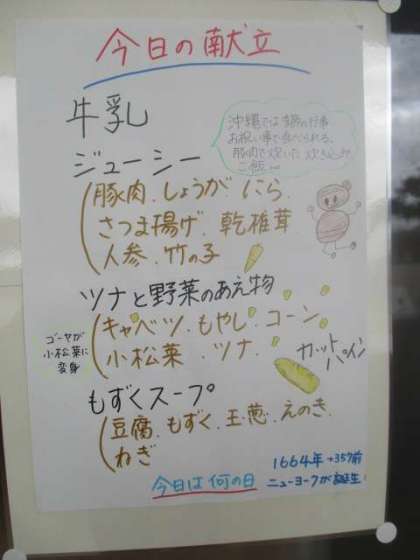 今日の献立
牛乳
沖縄では季節の行事
お祝い事で食べられる、
豚肉で炊いた炊き込み
ご飯
ジューシー
豚肉.しょうが.にら
さつま揚げ.乾椎茸
人参.竹の子
ツナと野菜のあえ物
キャベツ.もやし.コーン
小松菜.ツナ
ゴーヤが
小松菜に
変身
カット
パイン
もずくスープ
豆腐.もずく.玉葱.えのき.
ねぎ
今日は何の日
1664年→357前
ニューヨークが誕生!